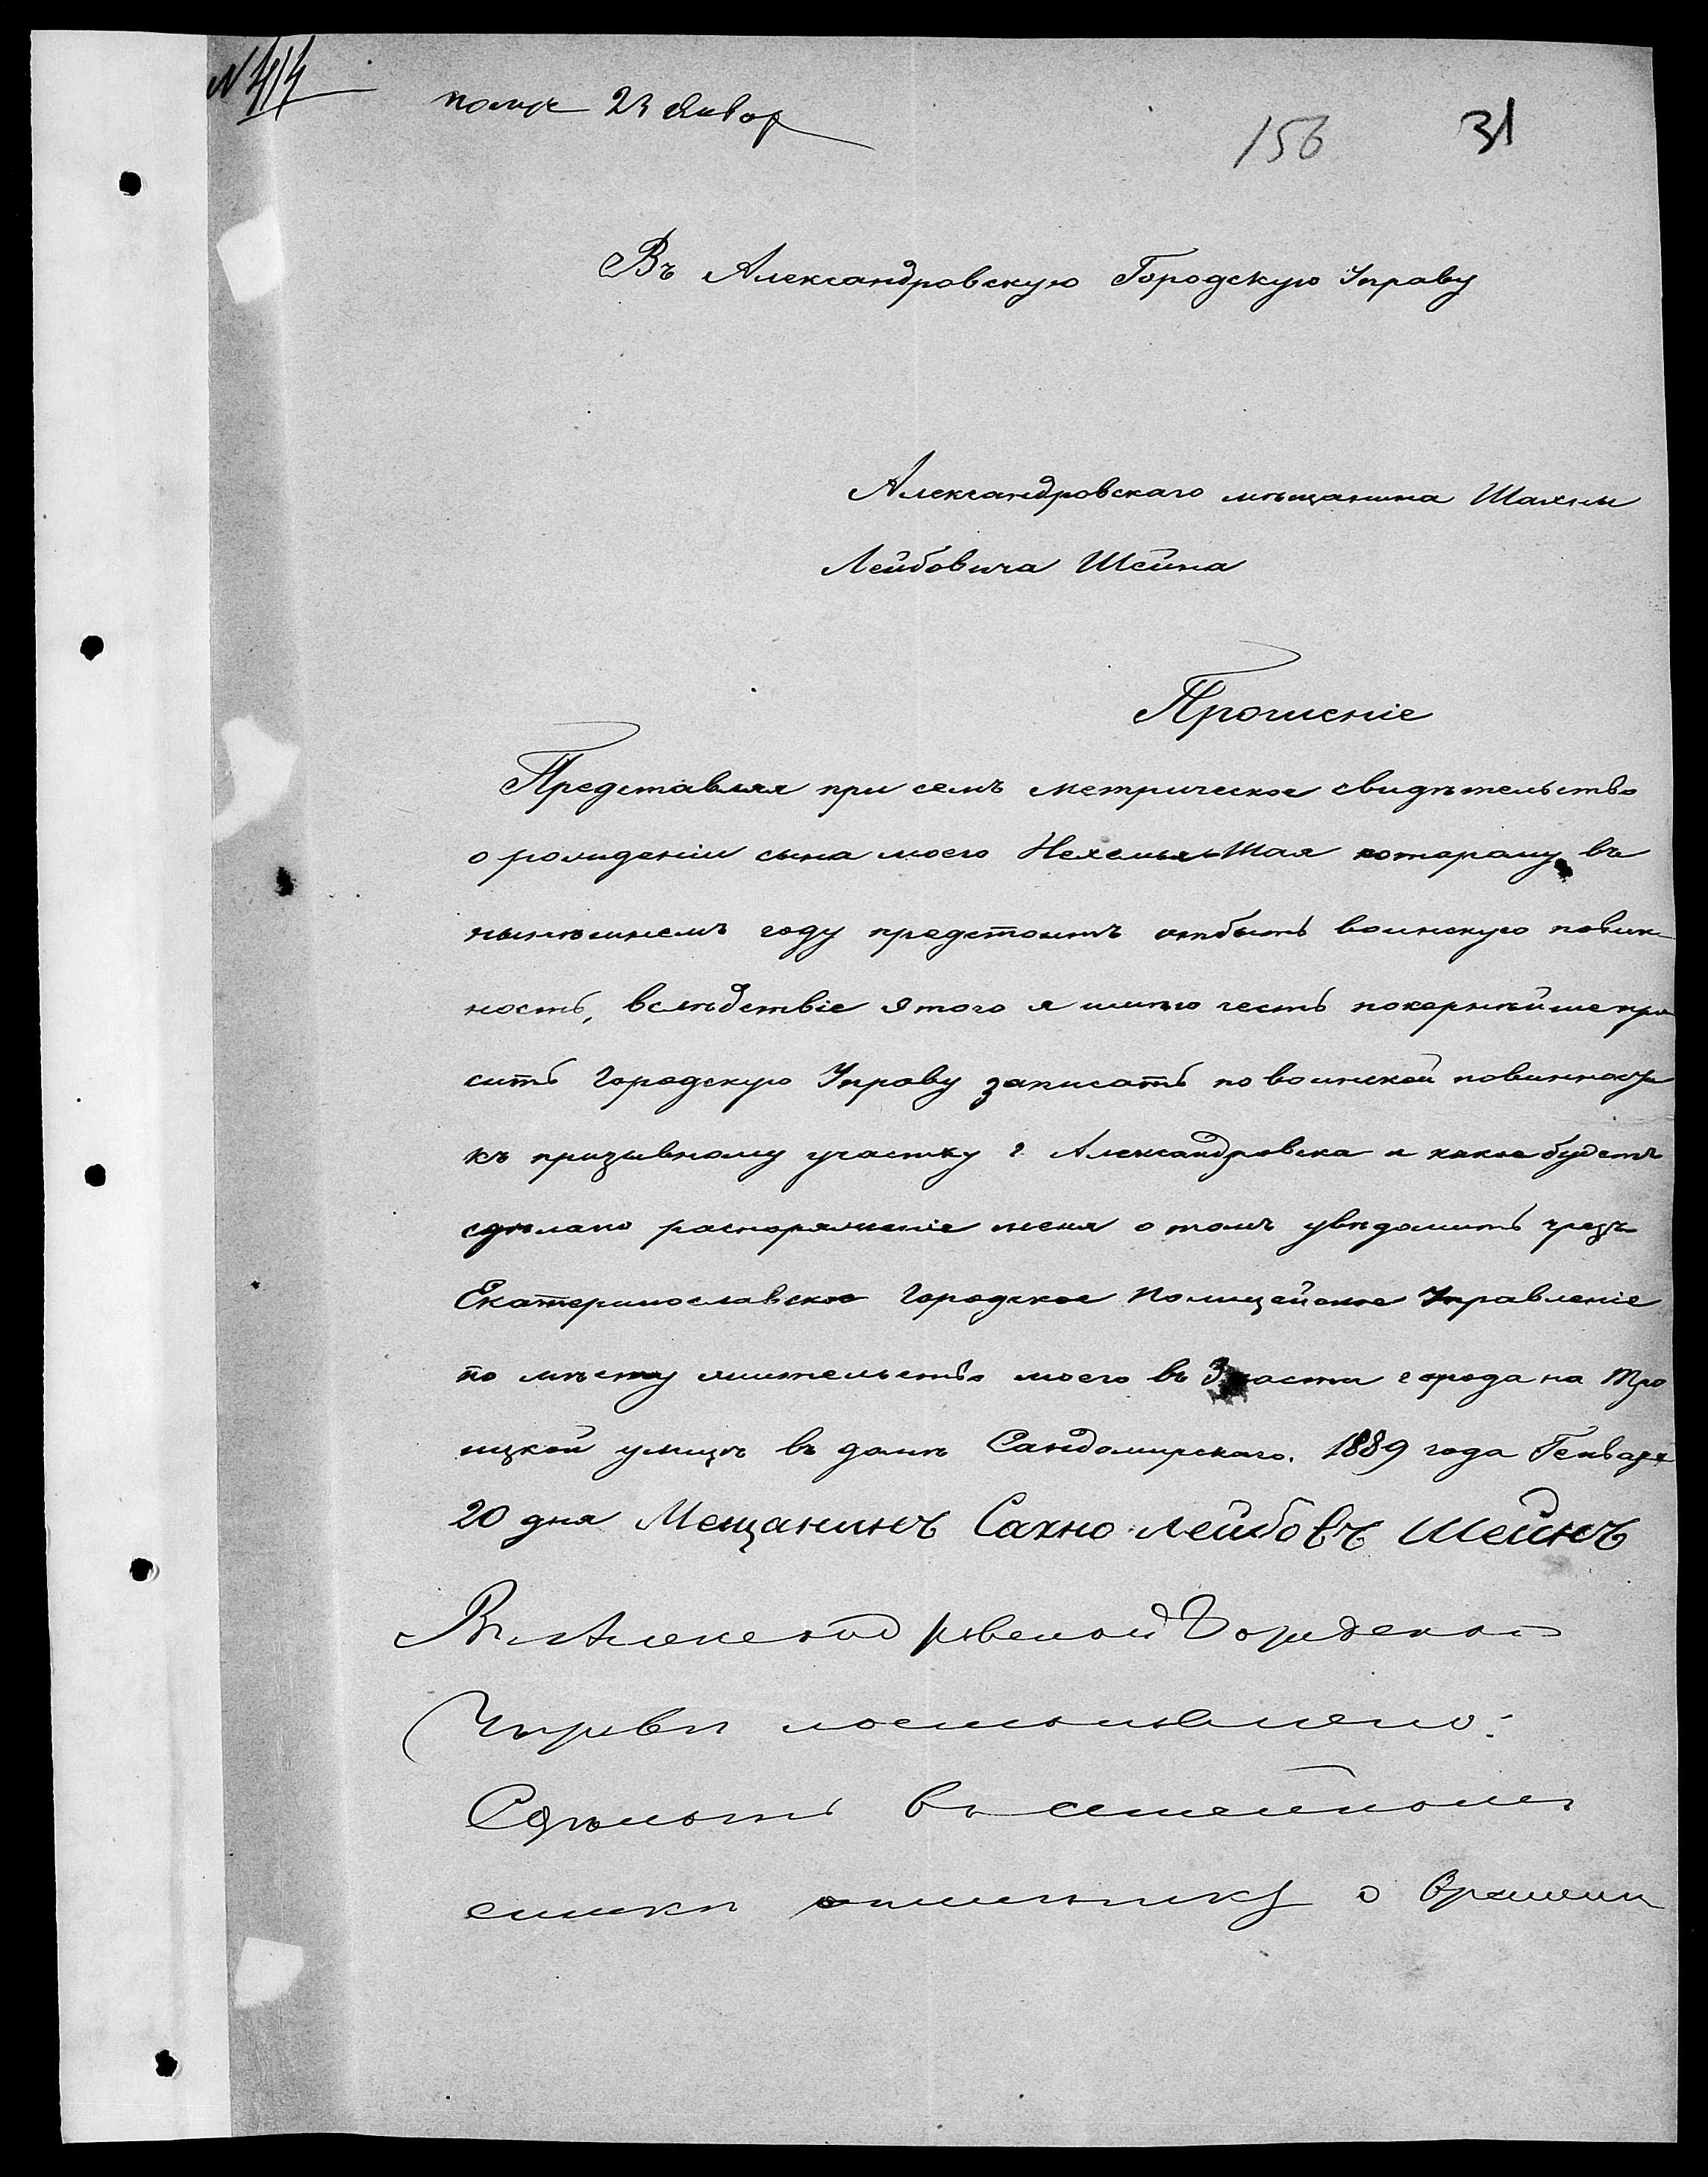 N 414
получ 23 Январ
156 31
Въ Александровскую Городскую Управу
Александровскаго мѣщанина Шахны
Лейбовича Шейна
Прошеніе
Представляя при семъ метрическое свидѣтельство
о рожденіи сына моего Нехемья-Шая которому въ
нынѣшнемъ году предстоитъ отбыть воинскую повин-
ность, вслѣдствіе этого я имѣю честь покорнѣйше про
сить Городскую Управу записать по воинской повинности
къ призывному участку г. Александровска и какое будетъ
сдѣлано распоряженіе меня о томъ увѣдомить чрезъ
Екатеринославское Городское Полицейское Управленіе
по мѣсту жительства моего въ 3 части города на Тро
ицкой улицѣ въ домѣ Сандомирскаго. 1889 года Генваря
20 дня Мещанинъ Сахно Лейбовъ Шейнъ
Въ Александровской Городской
Управѣ постановлено:
Сдѣлать въ семейномъ
списки отмѣтку о времени